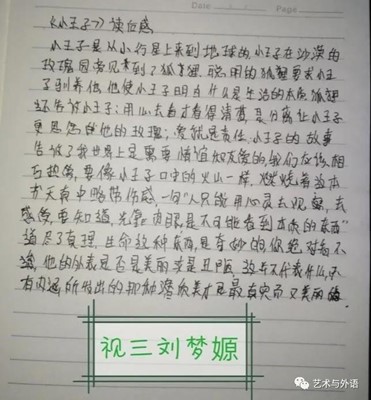 Date
Page
《小王子》读后感
小王子是从小行星上来到地球的,小王子在沙漠的
玫瑰园常见看到了狐狸,聪明的狐狸要求小王
子驯养他,他使小王子明白什么是生活的本质,狐狸
还告诉小王子:用心去看才看得清楚,是分离让小王子
更思念他的玫瑰;爱就是责任,小王子的故事
告诉了我世界上是需要情谊和友爱的,我们应该相
互热爱,要像小王子口中的火山一样,燃烧着这本
书天真中略带伤感,一句"人只能用心灵去观察,去
感悟,要知道,光靠肉眼是不可能看到本质的东西"
道尽了真理,生命这种东西,是奇妙的你绝对看不
透,他的外表是否是美丽或是丑陋,这并不代表什么,只
有内涵所付出的那份潜质美才是最真实而又美丽的
视三刘梦嫄
艺术与外语